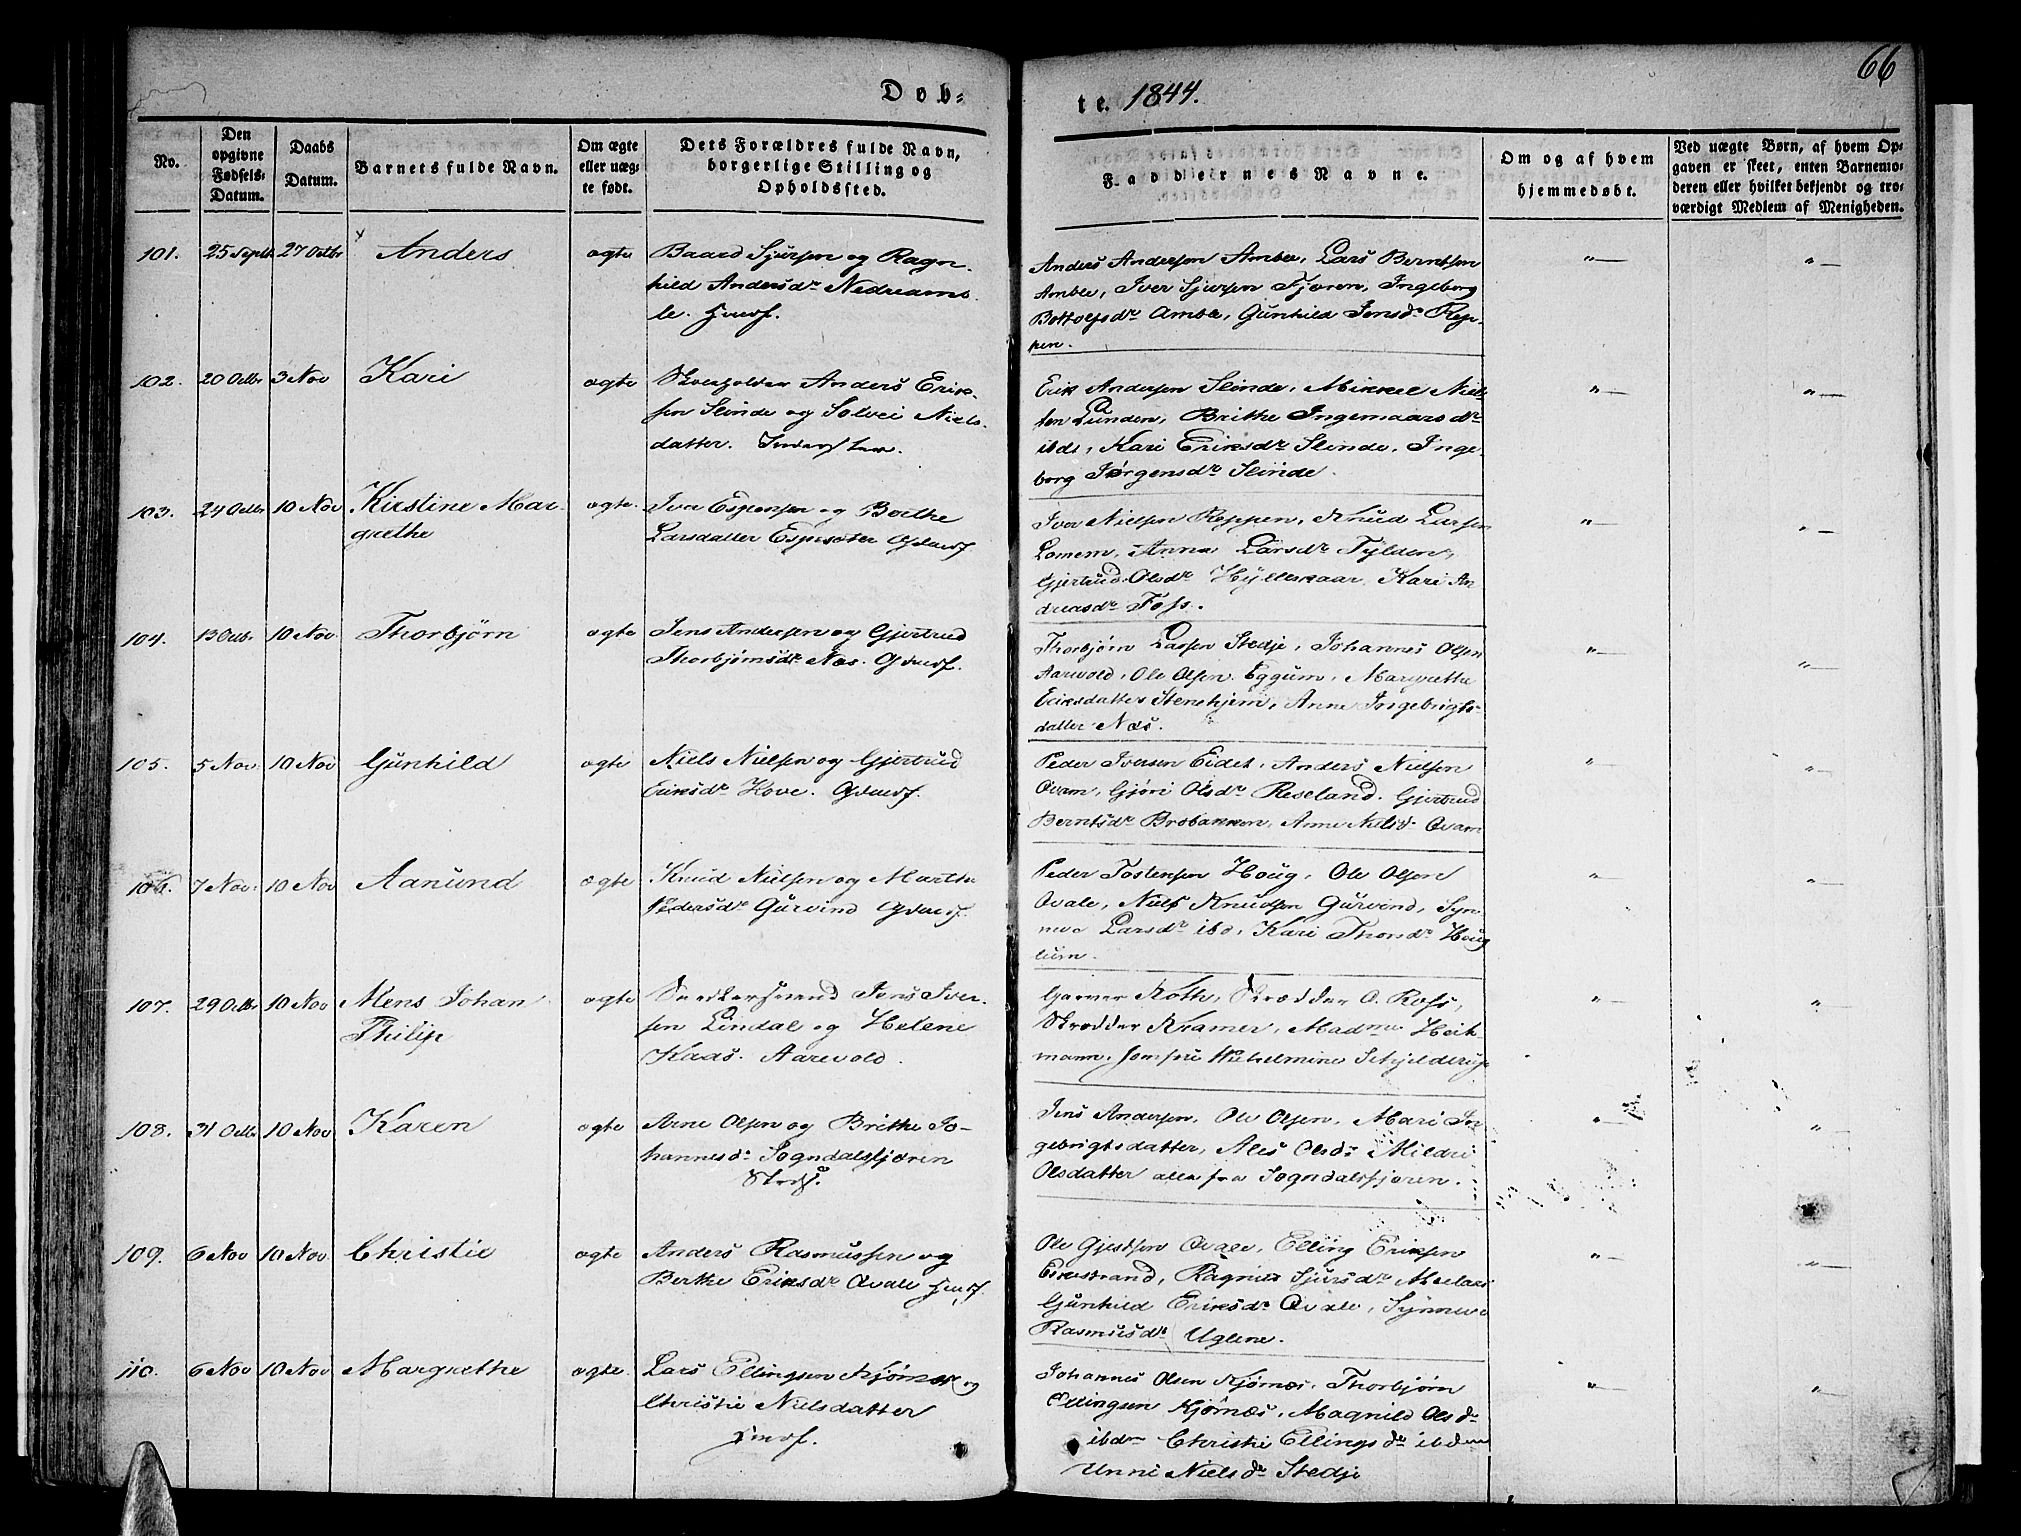 66
Døb-
te. 1844.
No.
Den opgivne Fødsels-Datum.
Daabs Datum.
Barnets fulde Navn.
Om ægte eller uæg-te født.
Dets Forældres fulde Navn, borgerlige Stilling og Opholdssted.
Faddernes Navne.
Om og af hvem hjemmedøbt.
Ved uægte Børn, af hvem Op-gaven er skeet, enten Barnemo-deren eller hvilket bekjendt og tro-værdigt Medlem af Menigheden.
101. 25 Septbr 27 Octbr Anders ægte
Baard Sjursen og Ragn-
hild Andersdr Nedreamb-
le. Hmdf.
Anders Andersen Amble, Lars Berntsen
Amble, Iver Sjursen Fjæren, Ingeborg
Bottolfsdr Amble, Gunhild Jensdr Rep-
pen.
102. 20 Octbr 3 Nov Kari ægte
Skoleholder Anders Erik-
sen Slinde og Solvei Niels-
datter.
Erik Andersen Slinde, Mikkel Niel-
sen Lunden, Brithe Ingemaarsdr
ibds, Kari Eriksdr Slinde, Inge-
borg Jørgensdr Slinde.
103. 24 Octbr 10 Nov Kirstine Mar-
grethe
ægte
Iver Espensen og Berthe
Larsdatter Espesæter Gdmdf
Iver Nielsen Reppen, Knud Larsen
Lomem, Anna Larsdr Fylden,
Gjertrud Olsdr Hylleskaar, Kari An
dreasdr Foss.
104. 13 Octbr 10 Nov Thorbjørn ægte
Jens Andersen og Gjertrud
Thorbjørnsdr Næs. Gdmdf.
Thorbjørn Lassen Stedje, Johannes Olsen
Aarevold, Ole Olsen Eggum, Margrethe
Eriksdatter Stenehjem, Anne Ingebrigts-
datter Næs.
105. 5 Nov 10 Nov Gunhild ægte
Niels Nielsen og Gjertrud
Eriksdr Hove. Gdmdf.
Peder Iversen Eidet, Anders Nielsen
Qvam, Gjøri Olsdr Reseland, Gjertrud
Berntsdr Brobakken, Anne Nielsdr Qvam
106. 7 Nov 10 Nov Aamund ægte
Knud Nielsen og Marthe
Pedersdr Gurvind Gdmdf.
Peder Tostensen Houg, Ole Olsen
Qvale, Niels Knudsen Gurvind, Syn-
neve Larsdr ibd, Kari Thorsdr Houg
lum.
107. 29 Octbr 10 Nov Mens Johan
Philip
ægte
Snedkersvend Jens Iver-
sen Lindal og Helene
Kaas. Aarevold.
Garver Koth, Skrædder O. Ross,
Skrædder Kramer, Madme Heik-
mann, Jomfru Wilhelmine Schjelderup
108. 31 Octbr 10 Nov Karen ægte
Arne Olsen og Brithe Jo-
hannesdr Sogndalsfjæren
Jens Andersen, Ole Olsen, Mari In
gebrigtsdatter, Ales Olsdr Mildri
Olsdatter alle fra Sogndalsfjæren.
109. 6 Nov 10 Nov Christie ægte
Anders Rasmussen og
Berthe Eriksdr Qvale Hmdf.
Ole Gjestsen Qvale, Elling Eriksen
Eikestrand, Ragnild Sjursdr
Gunhild Eriksdr Qvale, Synneve
Rasmusdr Uglene.
110. 6 Nov 10 Nov Margrethe ægte
Lars Ellingsen Kjørnæs og
Christie Nielsdatter
Hmdf.
Johannes Olsen Kjørnæs, Thorbjørn
Ellingsen Kjørnæs, Magnild Olsdr
ibdm Christie Ellingsdr ibdem
Unni Nielsdr Stedje